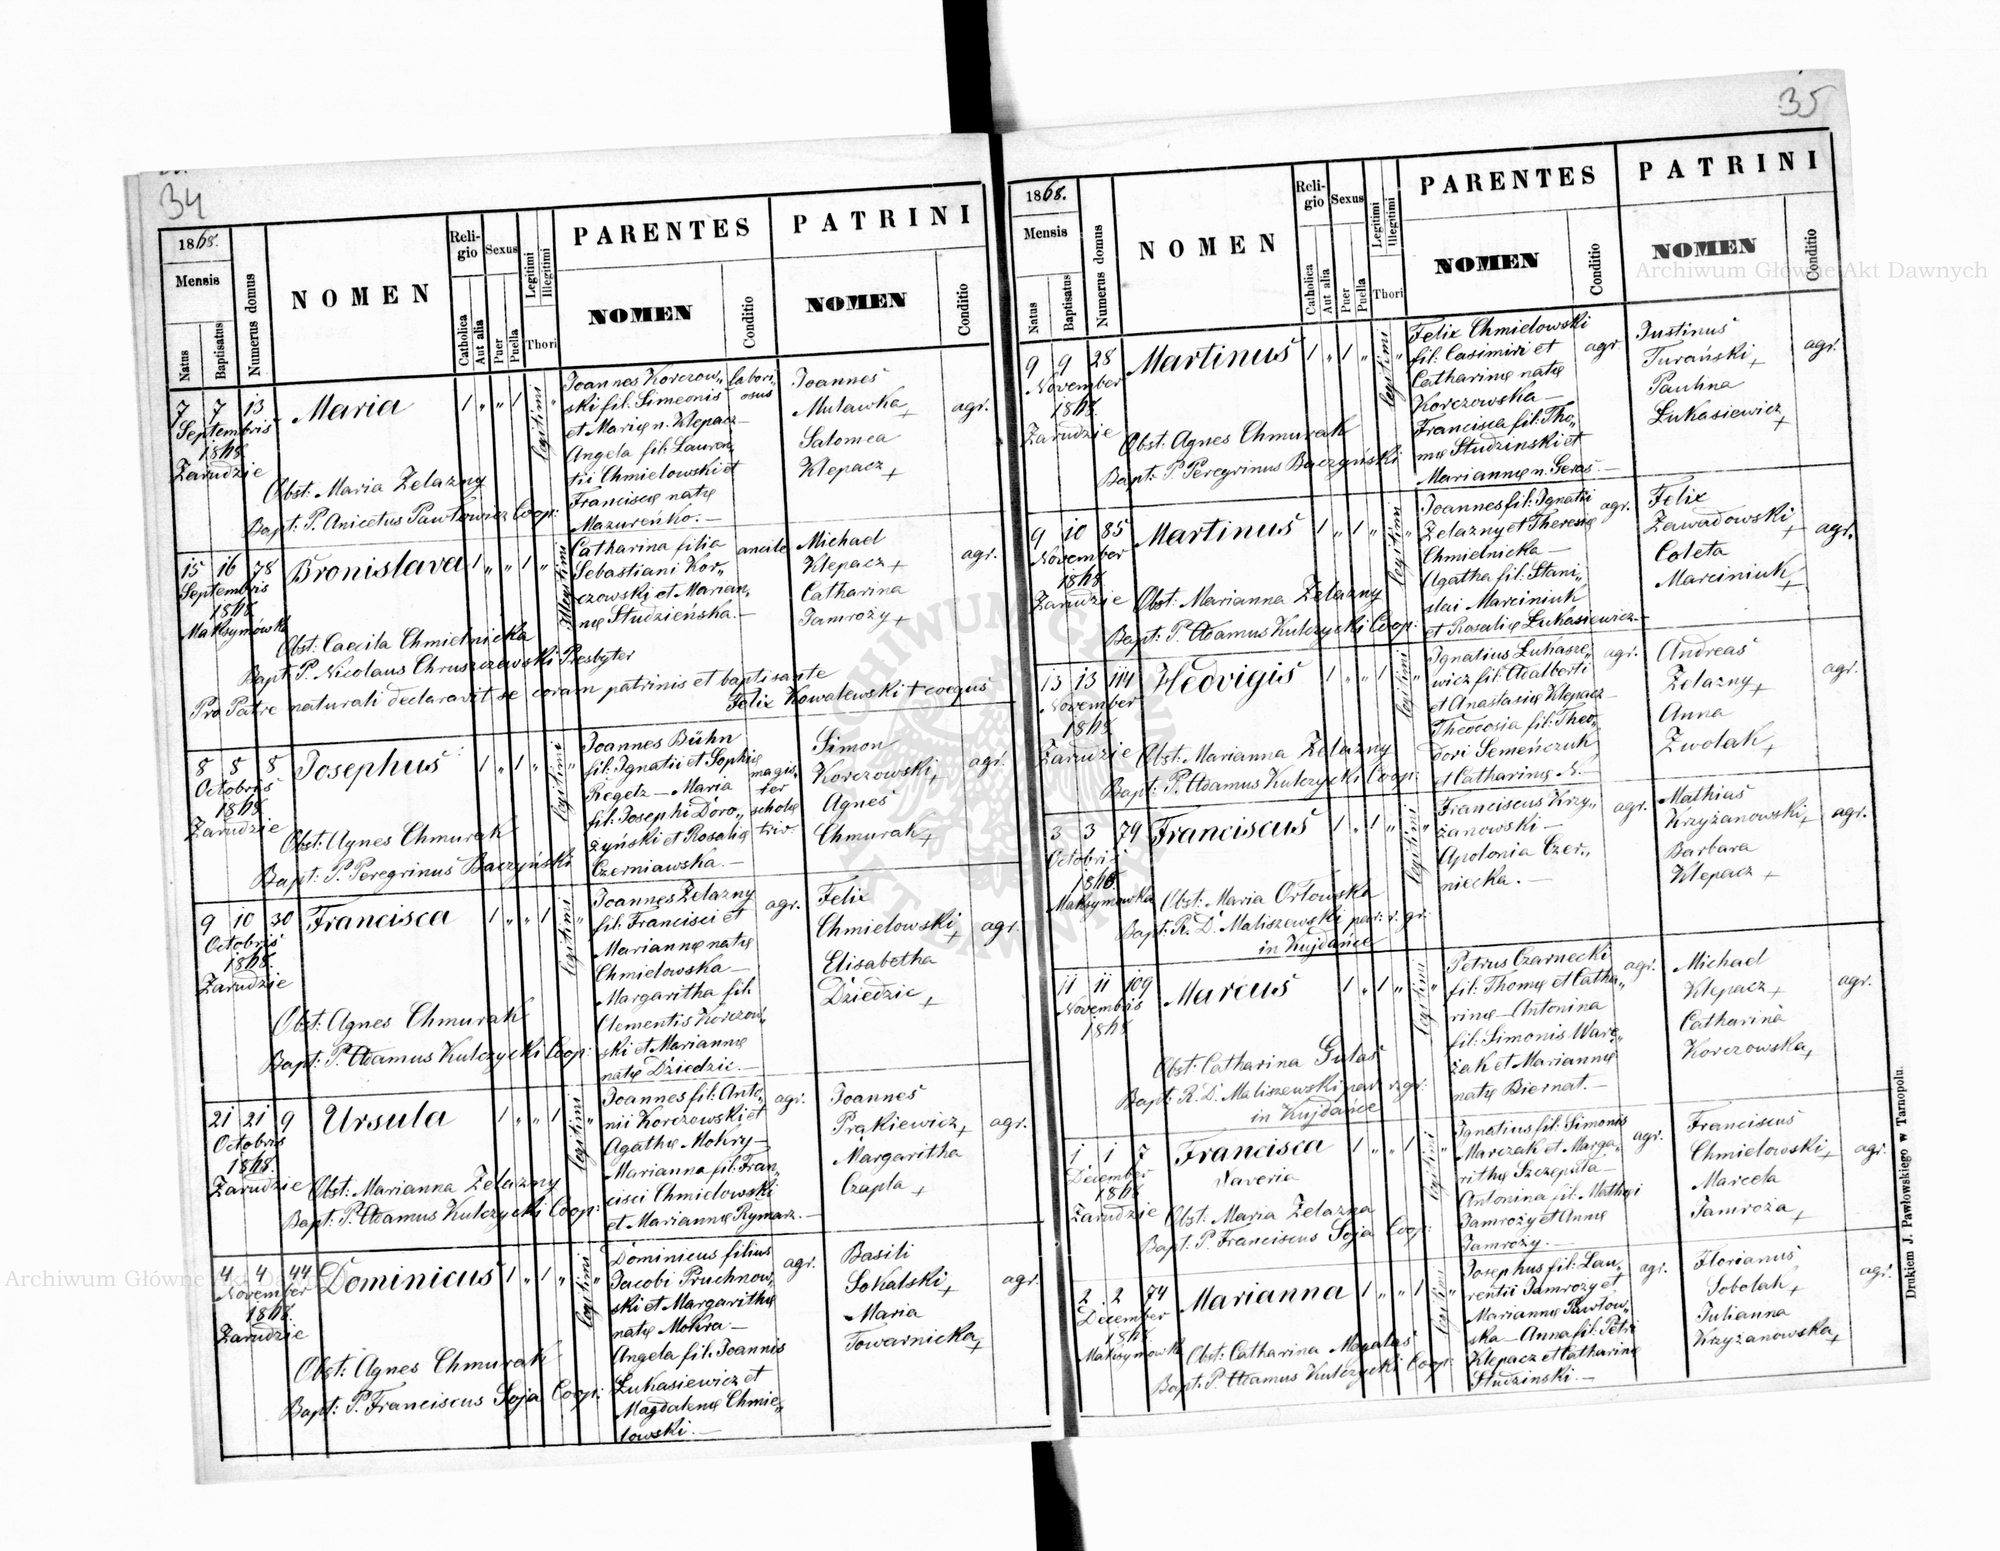 34
1868.
Mensis
Natus
Baptisatus
Numerus domus
NOMEN
Religio
Catholica
Aut alia
Sexus
Puer
Puella
Legitimi
Illegitimi
Thori
PARENTES
NOMEN
Conditio
PATRINI
NOMEN
Conditio
7 7 13
Septembris
1868.
Zarudzie
Maria
1 „ „ 1
legitimi
„
Obst: Maria Zelazny
Bapt: P. Anicetus Pawłowicz Coop:
Joannes Korczow„
ski fil: Simeonis
et Marię n. Klepacz—
Angela fil: Lauren„
tii Chmielowski et
Franciscę natę
Mazureńko.—
labori„
osus
Joannes
Mulawka +
Salomea
Klepacz +
agr.
15 16 78
Septembris
1868.
Maksymówka
Bronislava
1 „ „ 1 „
Illegitimi
Obst: Caecila Chmielnicka
Bapt P. Nicolaus Chruszczewski Presbyter
Pro Patre naturali declaravit se coram patrinis et baptisante
Felix Kowalewski + coequs
Catharina filia
Sebastiani Kor„
czowski et Marian„
nę Studzieńska.—
ancile
Michael
Klepacz +
Catharina
Jamroży +
agr.
8 8 8
Octobris
1868.
Zarudzie
Josephus
1 „ 1 „
legitimi
„
Obst: Agnes Chmurak
Bapt: P. Peregrinus Baczyński
Joannes Bühn
fil: Ignatii et Sophię
Regetz — Maria
fil: Josephi Doro„
żyński et Rosalię
Czerniawska.—
magis„
ter
scholę
triv.
Simon
Korczowski +
Agnes
Chmurak +
agr.
9 10 30
Octobris
1868.
Zarudzie
Francisca
1 „ „ 1
legitimi
„
Obst: Agnes Chmurak
Bapt: P. Adamus Kulczycki Coop:
Joannes Zelazny
fil: Francisci et
Mariannę natę
Chmielowska—
Margaritha fil:
Clementis Korczow„
ski et Mariannę
natę Dziedzic.—
agr.
Felix
Chmielowski +
Elisabetha
Dziedzic +
agr.
21 21 9
Octobris
1868.
Zarudzie
Ursula
1 „ „ 1
legitimi
„
Obst: Marianna Zelazny
Bapt: P. Adamus Kulczycki Coop:
Joannes fil: Anto„
nii Korczowski et
Agathę Mokry—
Marianna fil: Fran„
cisci Chmielowski
et Mariannę Rymarz.—
agr.
Joannes
Prąkiewicz +
Margaritha
Czapla +
agr.
4 4 44
November
1868.
Zarudzie
Dominicus
1 „ 1 „
legitimi
„
Obst: Agnes Chmurak
Bapt: P. Franciscus Soja Coop:
Dominicus filius
Jacobi Pruchnow„
ski et Margarithę
natę Mokra—
Angela fil: Joannis
Łukasiewicz et
Magdalenę Chmie„
lowski.—
agr.
Basili
Sokalski +
Maria
Towarnicka +
agr.
35
1868.
Mensis
Natus
Baptisatus
Numerus domus
NOMEN
Religio
Catholica
Aut alia
Sexus
Puer
Puella
Legitimi
Illegitimi
Thori
PARENTES
NOMEN
Conditio
PATRINI
NOMEN
Conditio
9 9 28
November
1868.
Zarudzie
Martinus
1 „ 1 „
legitimi
„
Obst: Agnes Chmurak
Bapt: P. Peregrinus Baczyński
Felix Chmielowski
fil: Casimiri et
Catharinę natę
Korczowska—
Francisca fil: Tho„
mę Studzinski et
Mariannę n. Geras.—
agr.
Justinus
Turański +
Paulina
Łukasiewicz +
agr.
9 10 85
November
1868.
Zarudzie
Martinus
1 „ 1 „
legitimi
„
Obst: Marianna Zelazny
Bapt: P. Adamus Kulczycki Coop:
Joannes fil: Ignatii
Zelazny et Theresię
Chmielnicka—
Agatha fil: Stani„
slai Marciniuk
et Rosalię Łukasiewicz.—
agr.
Felix
Zawadowski +
Coleta
Marciniuk +
agr.
13 13 114
November
1868.
Zarudzie
Hedvigis
1 „ „ 1
legitimi
„
Obst: Marianna Zelazny
Bapt: P. Adamus Kulczycki Coop:
Ignatius Łukasze„
wicz fil: Adalberti
et Anastasię Klepacz—
Theodosia fil: Theo„
dori Semeńczuk
et Catharinę N.—
agr.
Andreas
Zelazny +
Anna
Zwolak +
agr.
3 3 79
Octobris
1868.
Maksymówka
Franciscus
1 „ 1 „
legitimi
„
Obst: Maria Orłowska
Bapt: R. D. Maliszewski par: r. gr:
in Kujdańce
Franciscus Krzy„
żanowski—
Apolonia Czer„
niecka.—
agr.
Mathias
Krzyżanowski +
Barbara
Klepacz +
agr.
11 11 109
Novembris
1868.
Marcus
1 „ 1 „
legitimi
„
Obst: Catharina Gulas
Bapt: R. D. Maliszewski par r. gr:
in Kujdańce
Petrus Czarnecki
fil: Thomę et Catha„
rinę—Antonina
fil: Simonis Warc„
żak et Mariannę
natę Biernat.—
agr.
Michael
Klepacz +
Catharina
Korczowska +
agr.
1 1 7
December
1868
Zarudzie
Francisca
Xaveria
1 „ „ 1
legitimi
„
Obst: Maria Zelazna
Bapt: P. Franciscus Soja Coop:
Ignatius fil: Simonis
Marczak et Marga„
rithę Szczepula—
Antonina fil: Mathęi
Jamroży et Annę
Jamroży.—
agr.
Franciscus
Chmielowski +
Marcela
Jamroża +
agr.
2 2 74
December
1868.
Maksymowka
Marianna
1 „ „ 1
legitimi
„
Obst: Catharina Magalas
Bapt: P. Adamus Kulczycki Coop:
Josephus fil: Lau„
rentii Jamroży et
Mariannę Pawłow„
ska—Anna fil: Petri
Klepacz et Catharinę
Studzinski.—
agr.
Florianus
Sobolak +
Julianna
Krzyżanowska +
agr.
Drukiem J. Pawłowskiego w Tarnopolu.
Archiwum Główne Akt Dawnych
Archiwum Główne Akt Dawnych
ARCHIWUM GŁÓWNE AKT DAWNYCH